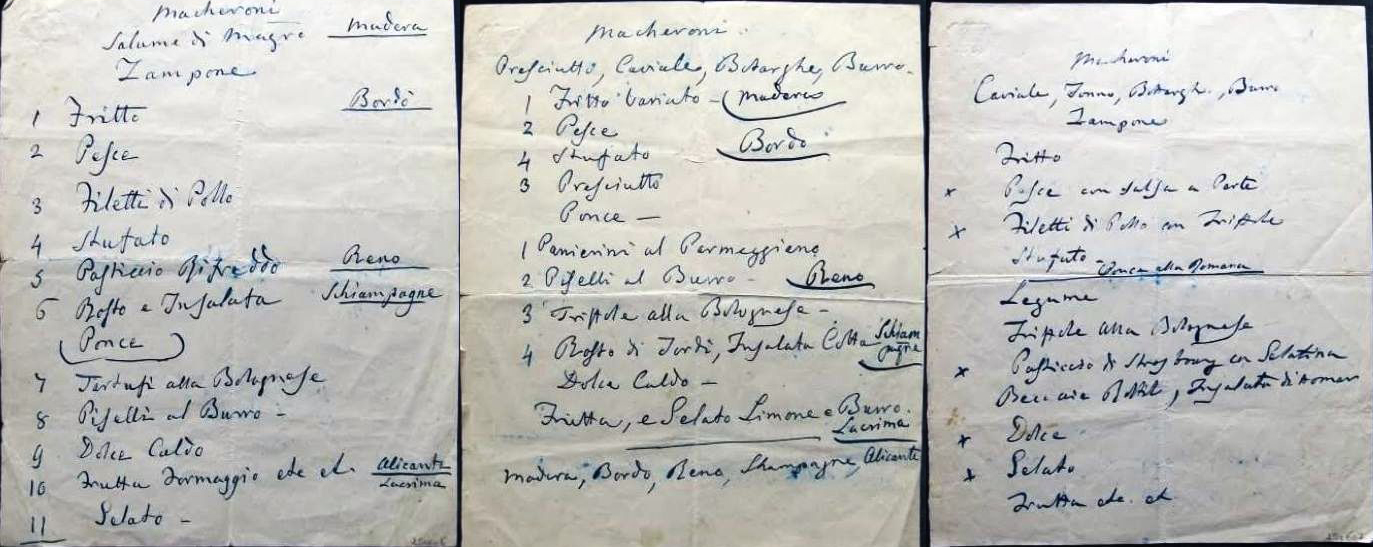 Macheroni
Salume di Magro Madera
Zampone
Bordò
1 Fritto
2 Pesce
3 Filetti di Pollo
4 Stufato
5 Pasticcio Rifreddo Reno
6 Rosto e Insalata Schiampagne
Ponce
7 Tartufi alla Bolognese
8 Piselli al Burro -
9 Dolce Caldo
10 Frutta Formaggio etc etc Alicante
Lacrima
11 Gelato -
Macheroni
Presciutto, Caviale, Botarghe, Burro.
1 Fritto Variato - Madera
2 Pesce
4 Stufato Bordò
3 Presciutto
Ponce -
1 Panierini al Parmeggiano
2 Piselli al Burro - Reno
3 Triffole alla Bolognese -
4 Rosto di Tordi, Insalata Cotta Schiam
pagne
Dolce Caldo -
Frutta, e Gelato Limone e Burro.
Lacrima
Madera, Bordò, Reno, Shampagne, Alicante
Macheroni
Caviale, Tonno, Botargh., Burro
Zampone
Fritto
x Pesce con salsa a Parte
x Filetti di Pollo con Triffole
Stufato -
Ponce alla Romana
Legume
Triffole alla Bolognese
x Pasticcio di Strasbourg con Gelatina
Beccacie Rostite, Insalata di Homar
x Dolce
x Gelato
Frutta etc. et